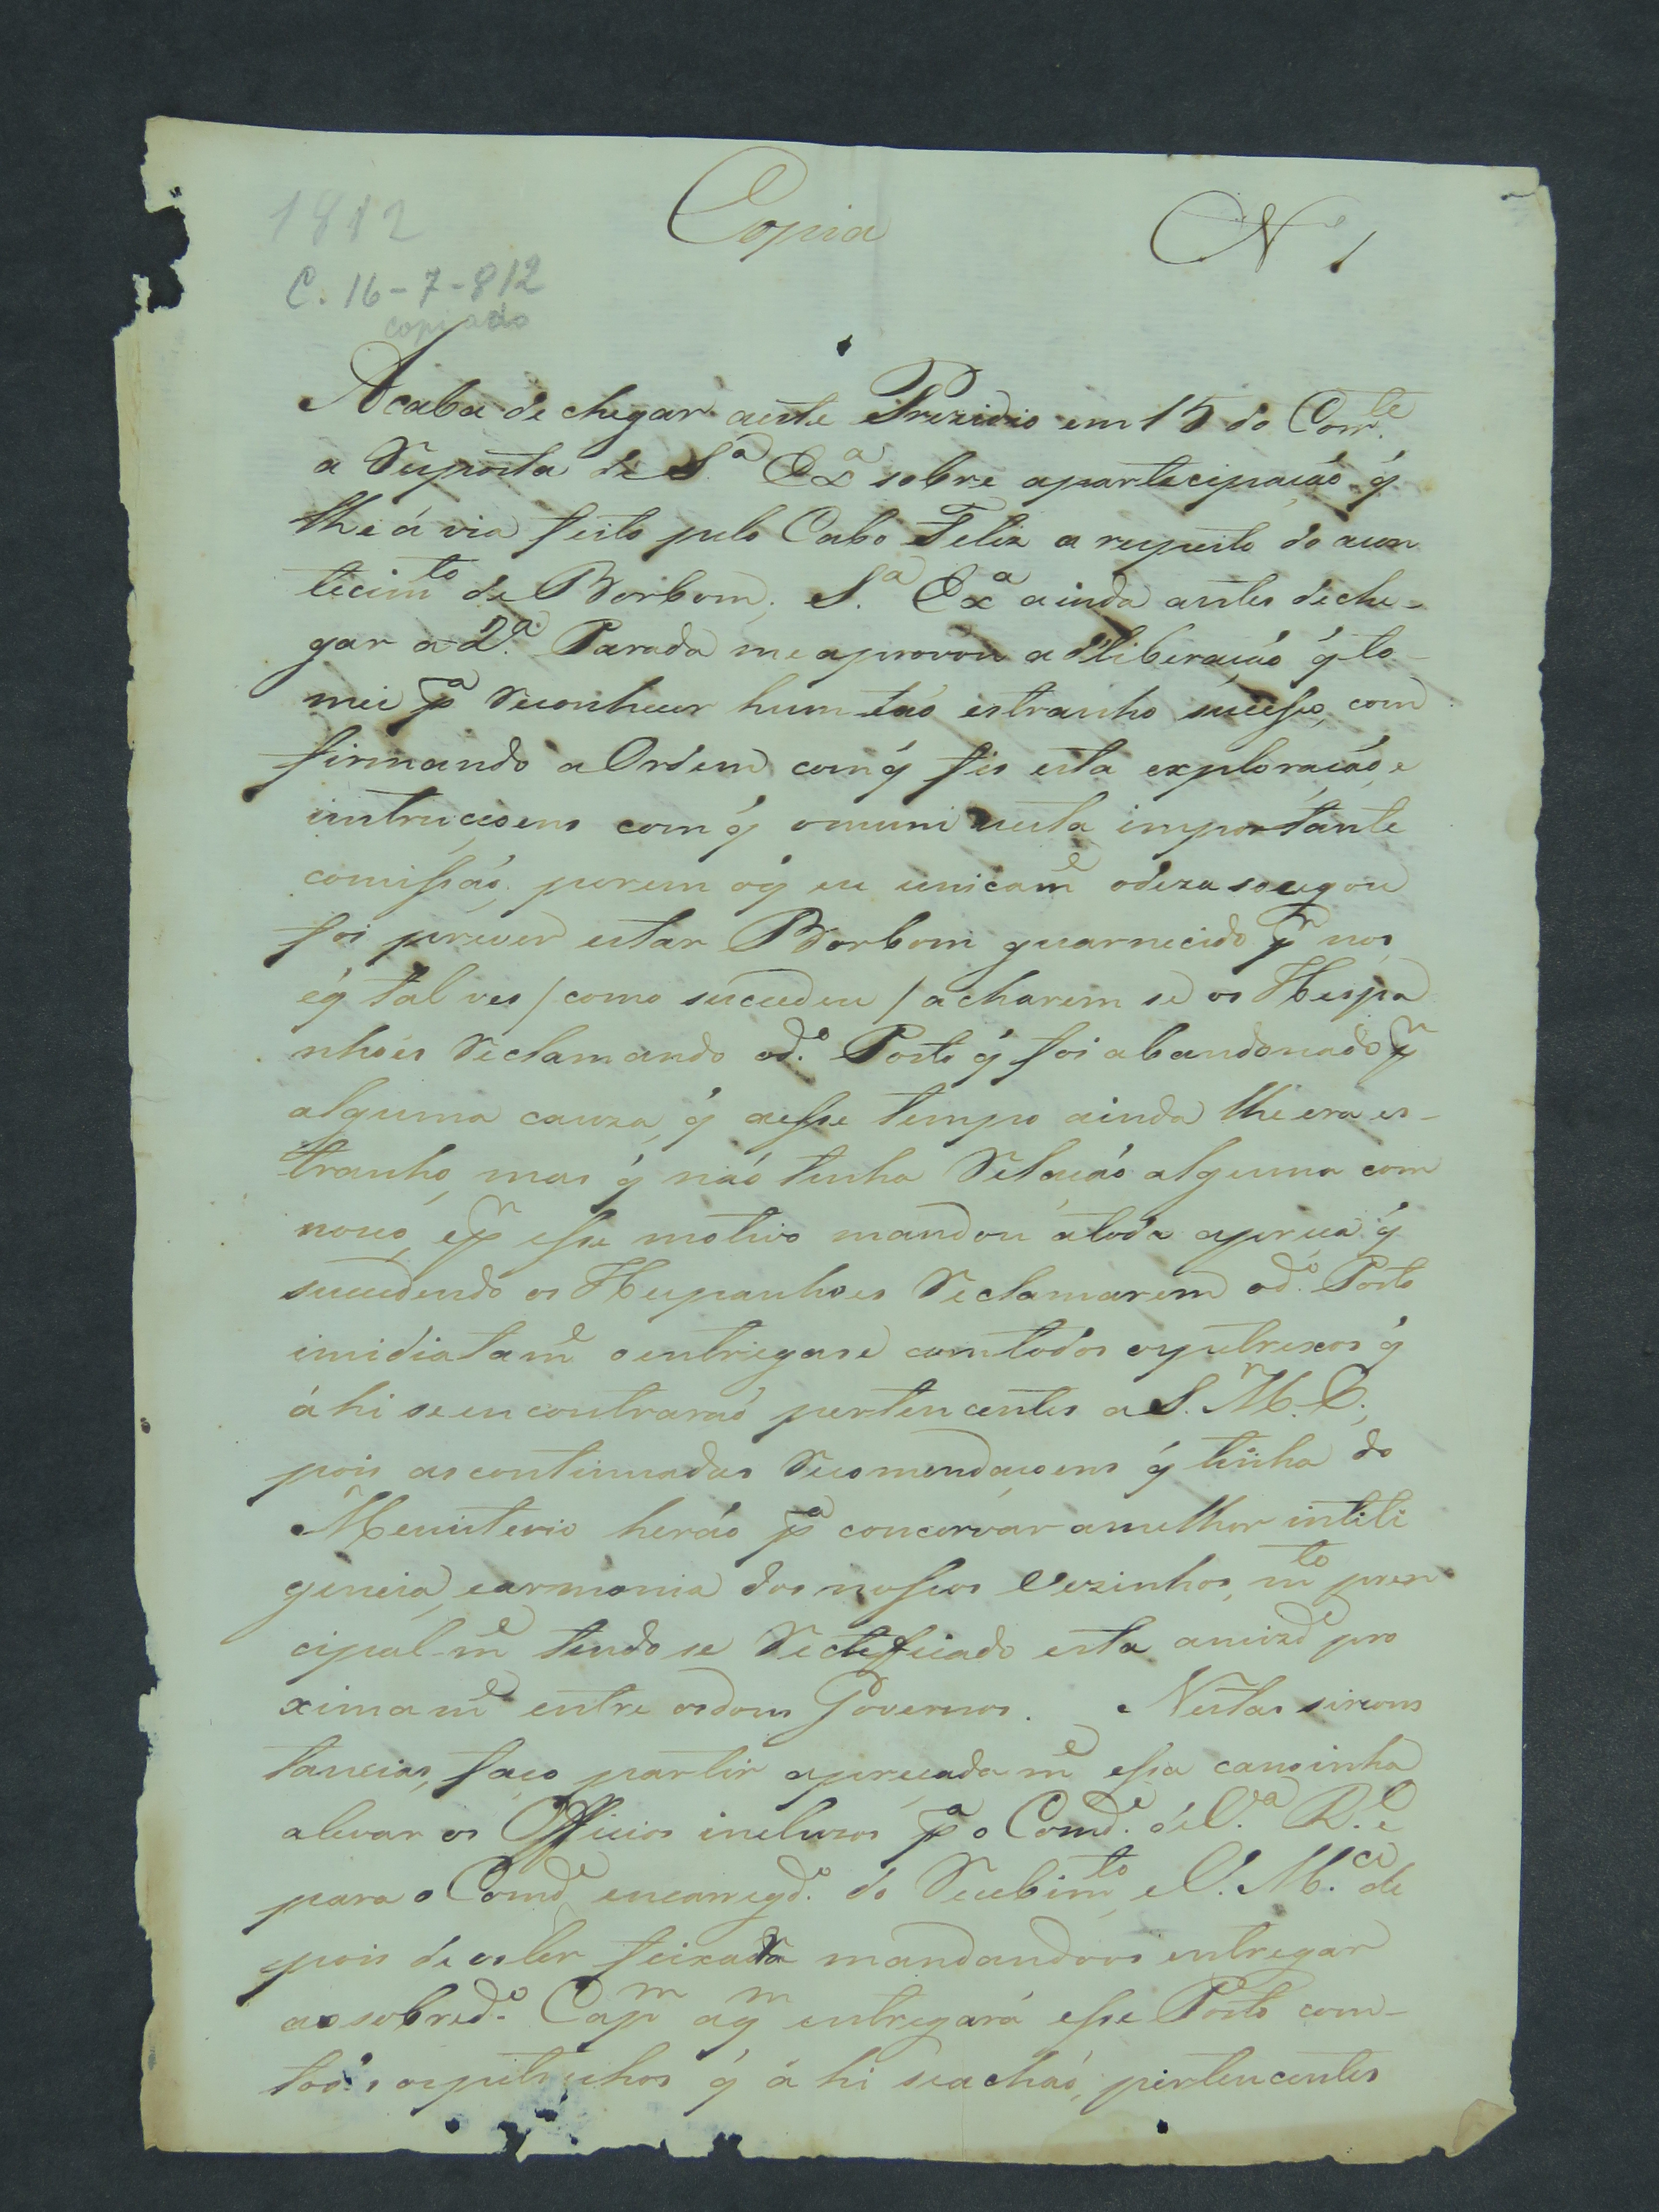 1812
Copia
Nº 1
C. 16-7-812
copiado
Acaba de chegar aeste Prezidio em 15 do Corr.te
a Reposta de S.ª Exª sobre apartecipação q̃
lhe á via feito pelo Cabo Feliz a respeito do acon
tecim.to de Borbom; S.ª Exª ainda antes deche-
gar a 2.ª Parada me aprovou a dliberação q̃ to-
mei p.ª Reconhecer hum tão estranho sucesso, com
firmando a Ordem com q̃ fis esta exploração, e
instruçoens com q̃ o muni nesta importante
comissão, porem o q̃ eu unicam.e o dezasocegou
foi prever estar Borbom guarnecido p.r nos,
e q̃ tal ves / como sucedeu / acharem se os Hespa
nhoes Reclamando o d.º Posto q̃ foi abandonado p.r
alguma cauza, q̃ aesse tempo ainda lhe era es-
tranho, mas q̃ não tinha Relação alguma com
nosco, e p.r esse motivo mandou atoda apreça q̃
sucedendo os Hespanhoes Reclamarem o d.º Posto
imidiatam.e o entregase com todos ospetrexos q̃
á hi se encontrarão pertencentes a S. M. C.,
pois as continuadas Recomendaçoens q̃ tinha do
Menisterio herão p.ª concervar amelhor inteli
gencia, earmonia dos nossos Vezinhos, m.to pren
cipalm.e tendo se Recteficado esta amizd.e pro
ximam.e entre osdous Governos. Nestas sircuns
tancias, faço partir apreçadam.e essa canoinha
alevar os Officios incluzos p.ª o Comd.e de V.ª R.l e
para o Comd.e encarregd.º do Recebim.to, e V. M.ce de
pois de os ler feixada mandandoos entregar
ao sobred.º Cap.m a q.m entregará esse Posto com-
tod.ºs ospetrechos q̃ á hi seachão, pertencentes